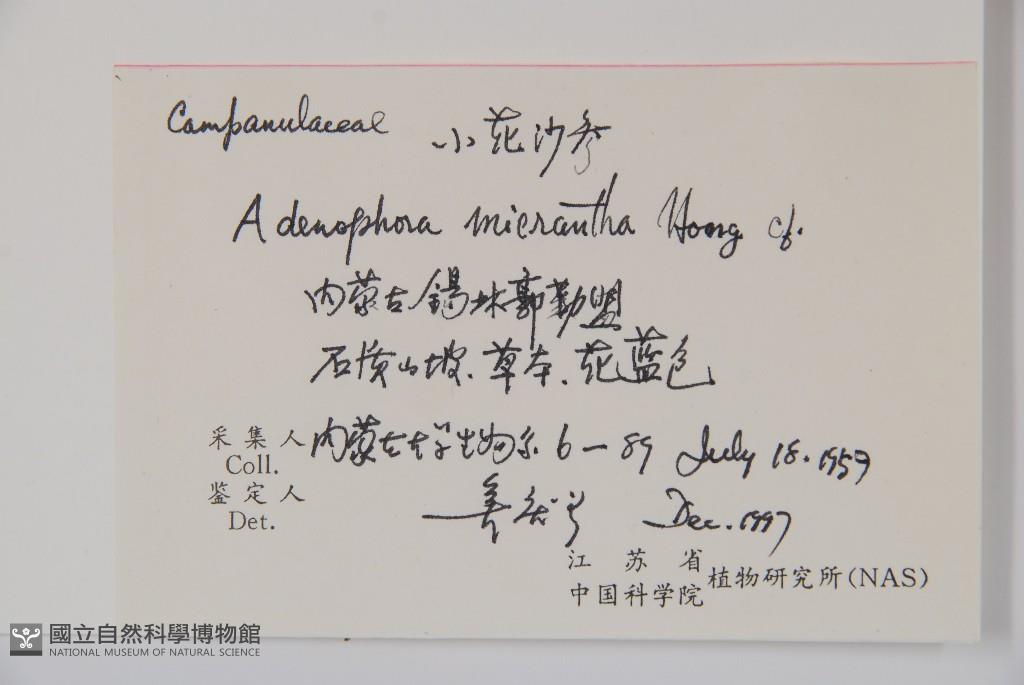 Campanulaceae 小花沙参
Adenophora micrantha Hong cf.
内蒙古锡林郭勒盟
石质山坡、草本、花蓝色
采集人 内蒙古大学生物系 6-89 July 18.1959
Coll.
鉴定人
Det. Dec. 1997
江苏省
中国科学院 植物研究所(NAS)
國立自然科學博物館
NATIONAL MUSEUM OF NATURAL SCIENCE